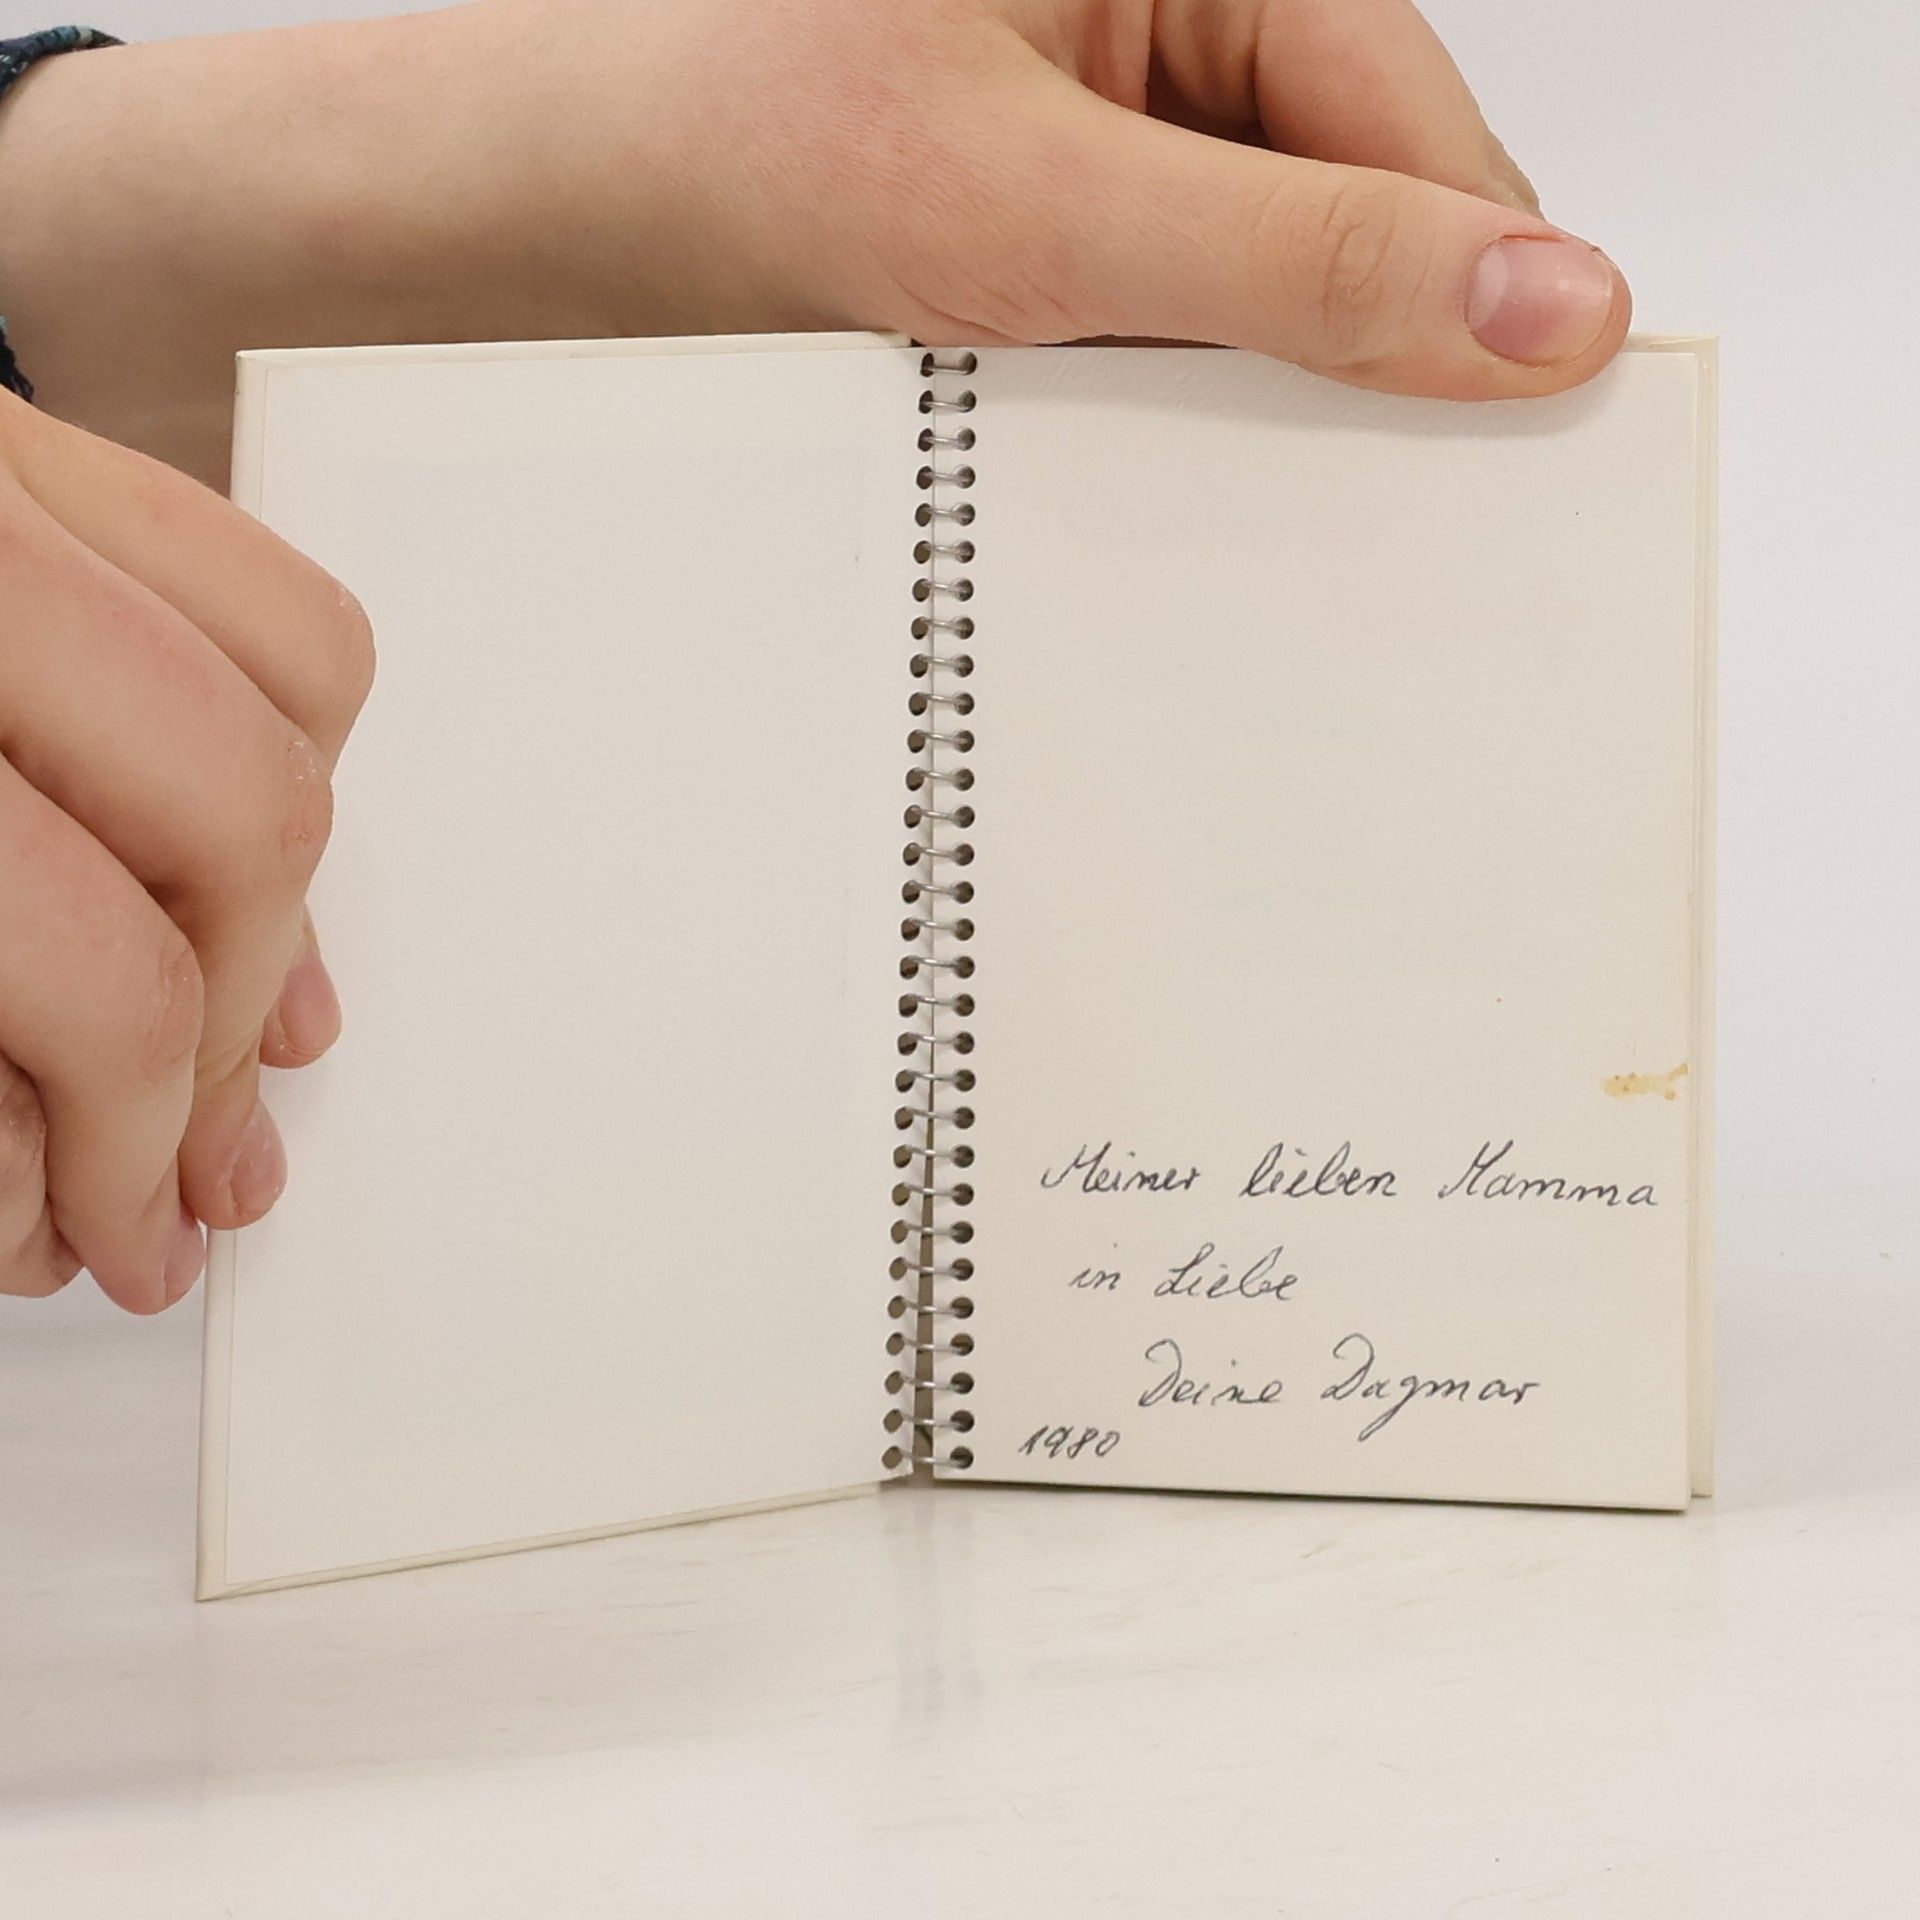 Meiner lieben Mamma
in Liebe
Deine Dagmar
1980